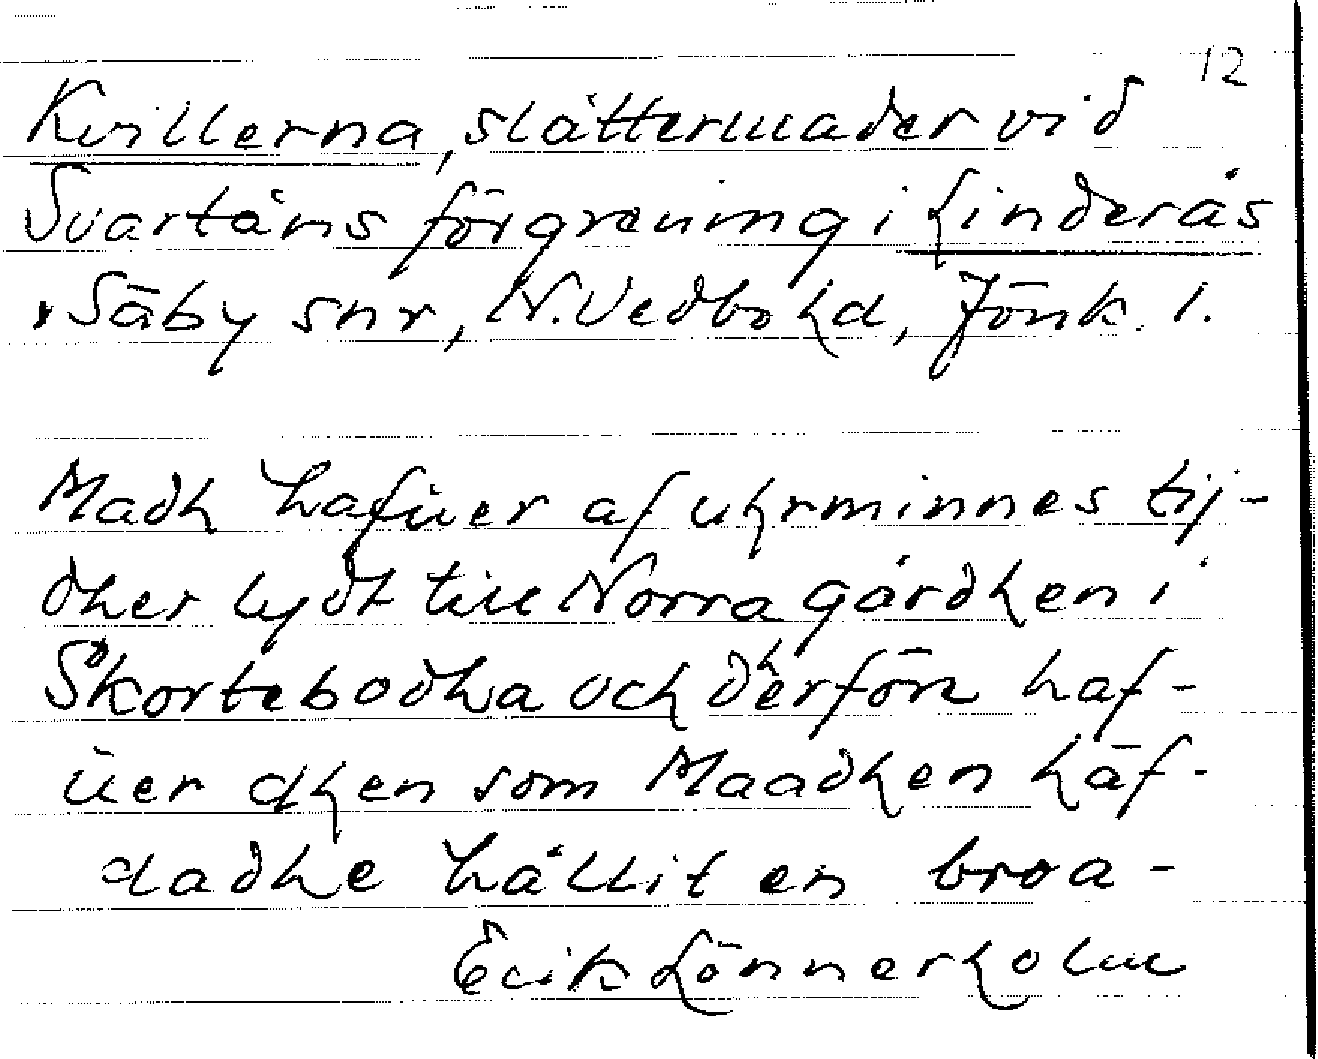 12
Kvillerna, slåttermader vid
Svartåns förgrening i Linderås
o Säby snr, N. Vedbo hd, Jönk. l.
Madh hafuer af uhrminnes tij-
dher lydt till Norra gårdhen i
Skortebodha och dherföre haf-
üer dhen som Maadhen häf-
dadhe hållit en broa-
Erik Lönnerholm